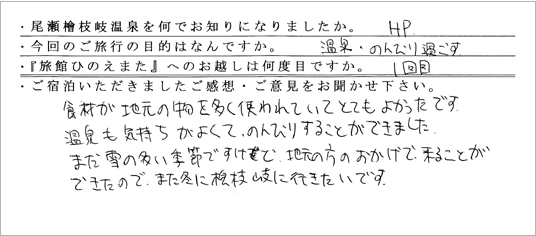 ・尾瀬檜枝岐温泉を何でお知りになりましたか。 HP.
・今回のご旅行の目的はなんですか。 温泉・のんびり過ごす
・『旅館ひのえまた』へのお越しは何度目ですか。 1回目
・ご宿泊いただきましたご感想・ご意見をお聞かせ下さい。
食材が地元の物を多く使われていてとてもよかったです。
温泉も気持ちがよくて、のんびりすることができました。
まだ雪の多い季節ですけど、地元の方のおかげで、来ることが
できたので、また冬に桧枝岐に行きたいです。